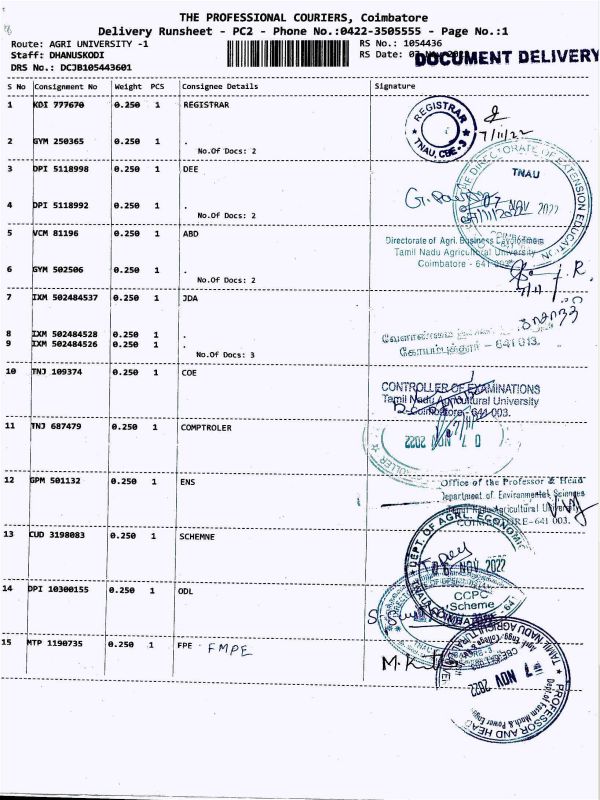 THE PROFESSIONAL COURIERS, Coimbatore
Delivery Runsheet - PC2 - Phone No.:0422-3505555 - Page No.:1
Route: AGRI UNIVERSITY -1
RS No.: 1054436
Staff: DHANUSKODI
RS Date: 07
DOCUMENT DELIVERY
DRS No.: DCJB105443601
S No Consignment No Weight PCS Consignee Details Signature
1 KDI 777670 0.250 1 REGISTRAR
REGISTRAR
TNAU, CBE-3
7/11/22
2 GYM 250365 0.250 1 .
No.Of Docs: 2
3 DPI 5118998 0.250 1 DEE
THE DIRECTORATE OF EXTENSION EDUCATION
TNAU
07 NOV 2022
4 DPI 5118992 0.250 1 .
No.Of Docs: 2
5 VCM 81196 0.250 1 ABD
Directorate of Agri. Business Development
Tamil Nadu Agricultural University
Coimbatore - 641 003
6 GYM 502506 0.250 1 .
No.Of Docs: 2
7 IXM 502484537 0.250 1 JDA
8 IXM 502484528 0.250 1 .
9 IXM 502484526 0.250 1 .
No.Of Docs: 3
வேளாண்மை
கோயம்புத்தூர் - 641 013.
10 TNJ 109374 0.250 1 COE
CONTROLLER OF EXAMINATIONS
Tamil Nadu Agricultural University
Coimbatore - 641 003.
11 TNJ 687479 0.250 1 COMPTROLER
07 NOV 2022
12 GPM 501132 0.250 1 ENS
Office of the Professor & Head
Department of Environmental Sciences
Tamil Nadu Agricultural University
COIMBATORE-641 003.
13 CUD 3198083 0.250 1 SCHEMNE
DEPT. OF AGRL. ECONOMIC
NOV 2022
CCPC
Scheme
TNAU, COIMBATORE - 64
14 DPI 10300155 0.250 1 ODL
15 MTP 1190735 0.250 1 FPE FMPE
PROFESSOR AND HEAD
Dept of Farm Mach. & Power Engg
7 NOV 2022
TAMIL NADU AGRICULTURAL